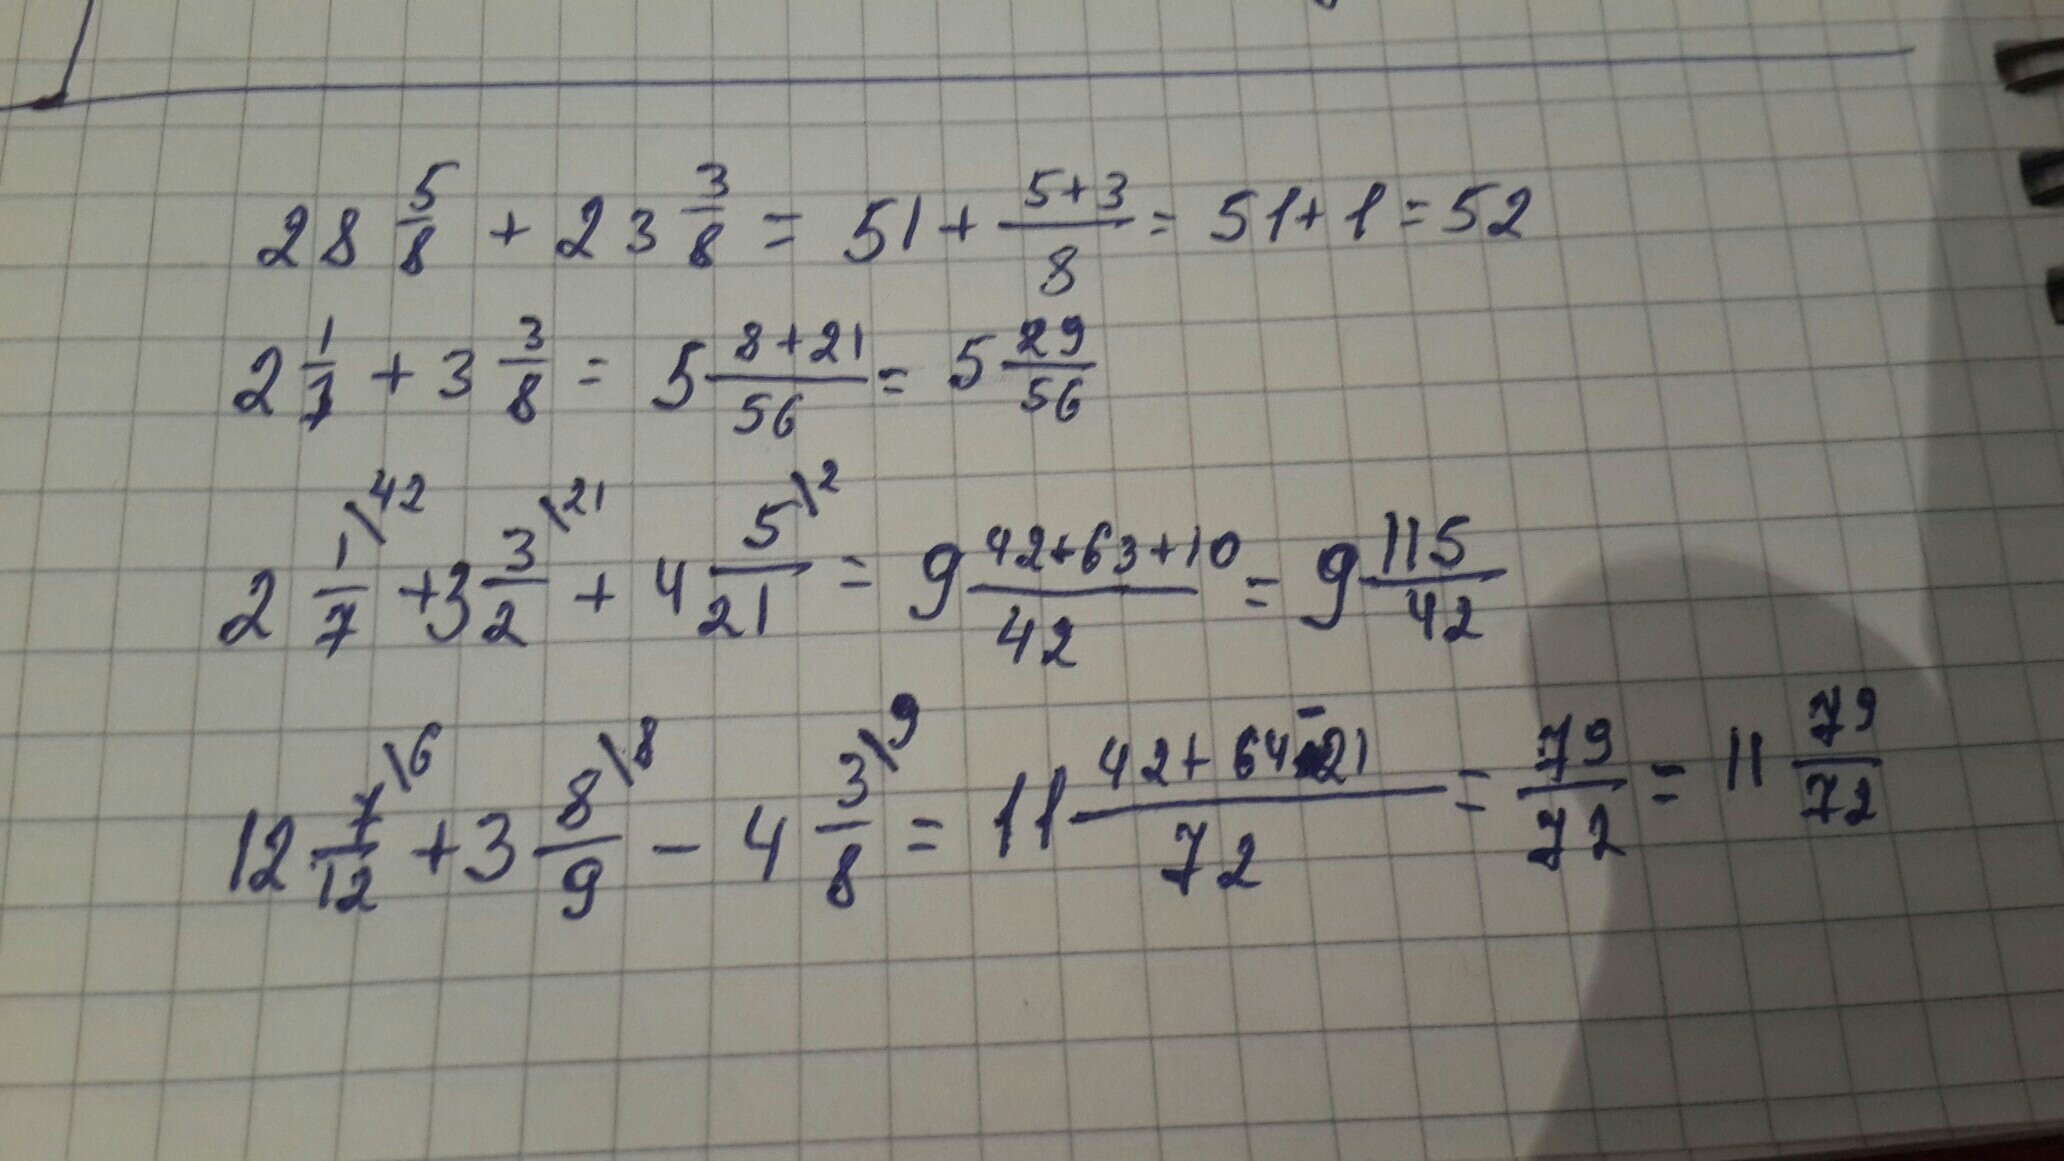 28 5/8 + 23 3/8 = 51 + (5+3)/8 = 51 + 1 = 52
2 1/7 + 3 3/8 = 5 (8+21)/56 = 5 29/56
2 1\42/7 + 3 3\21/2 + 4 5\2/21 = 9 (42+63+10)/42 = 9 115/42
12 7\6/12 + 3 8\8/9 - 4 3\9/8 = 11 (42+64-21)/72 = 79/72 = 11 79/72